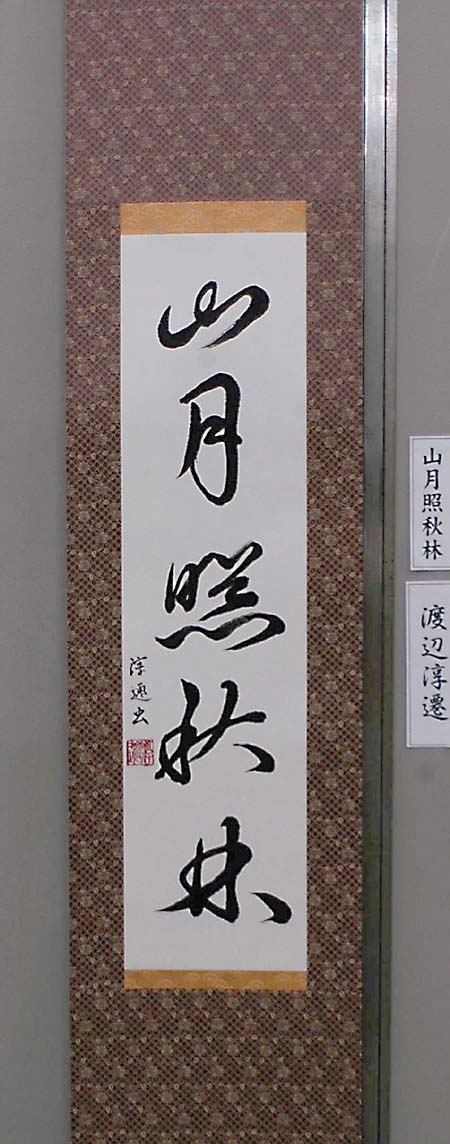 山月照秋林
淳遷書
山月照秋林
渡辺淳遷